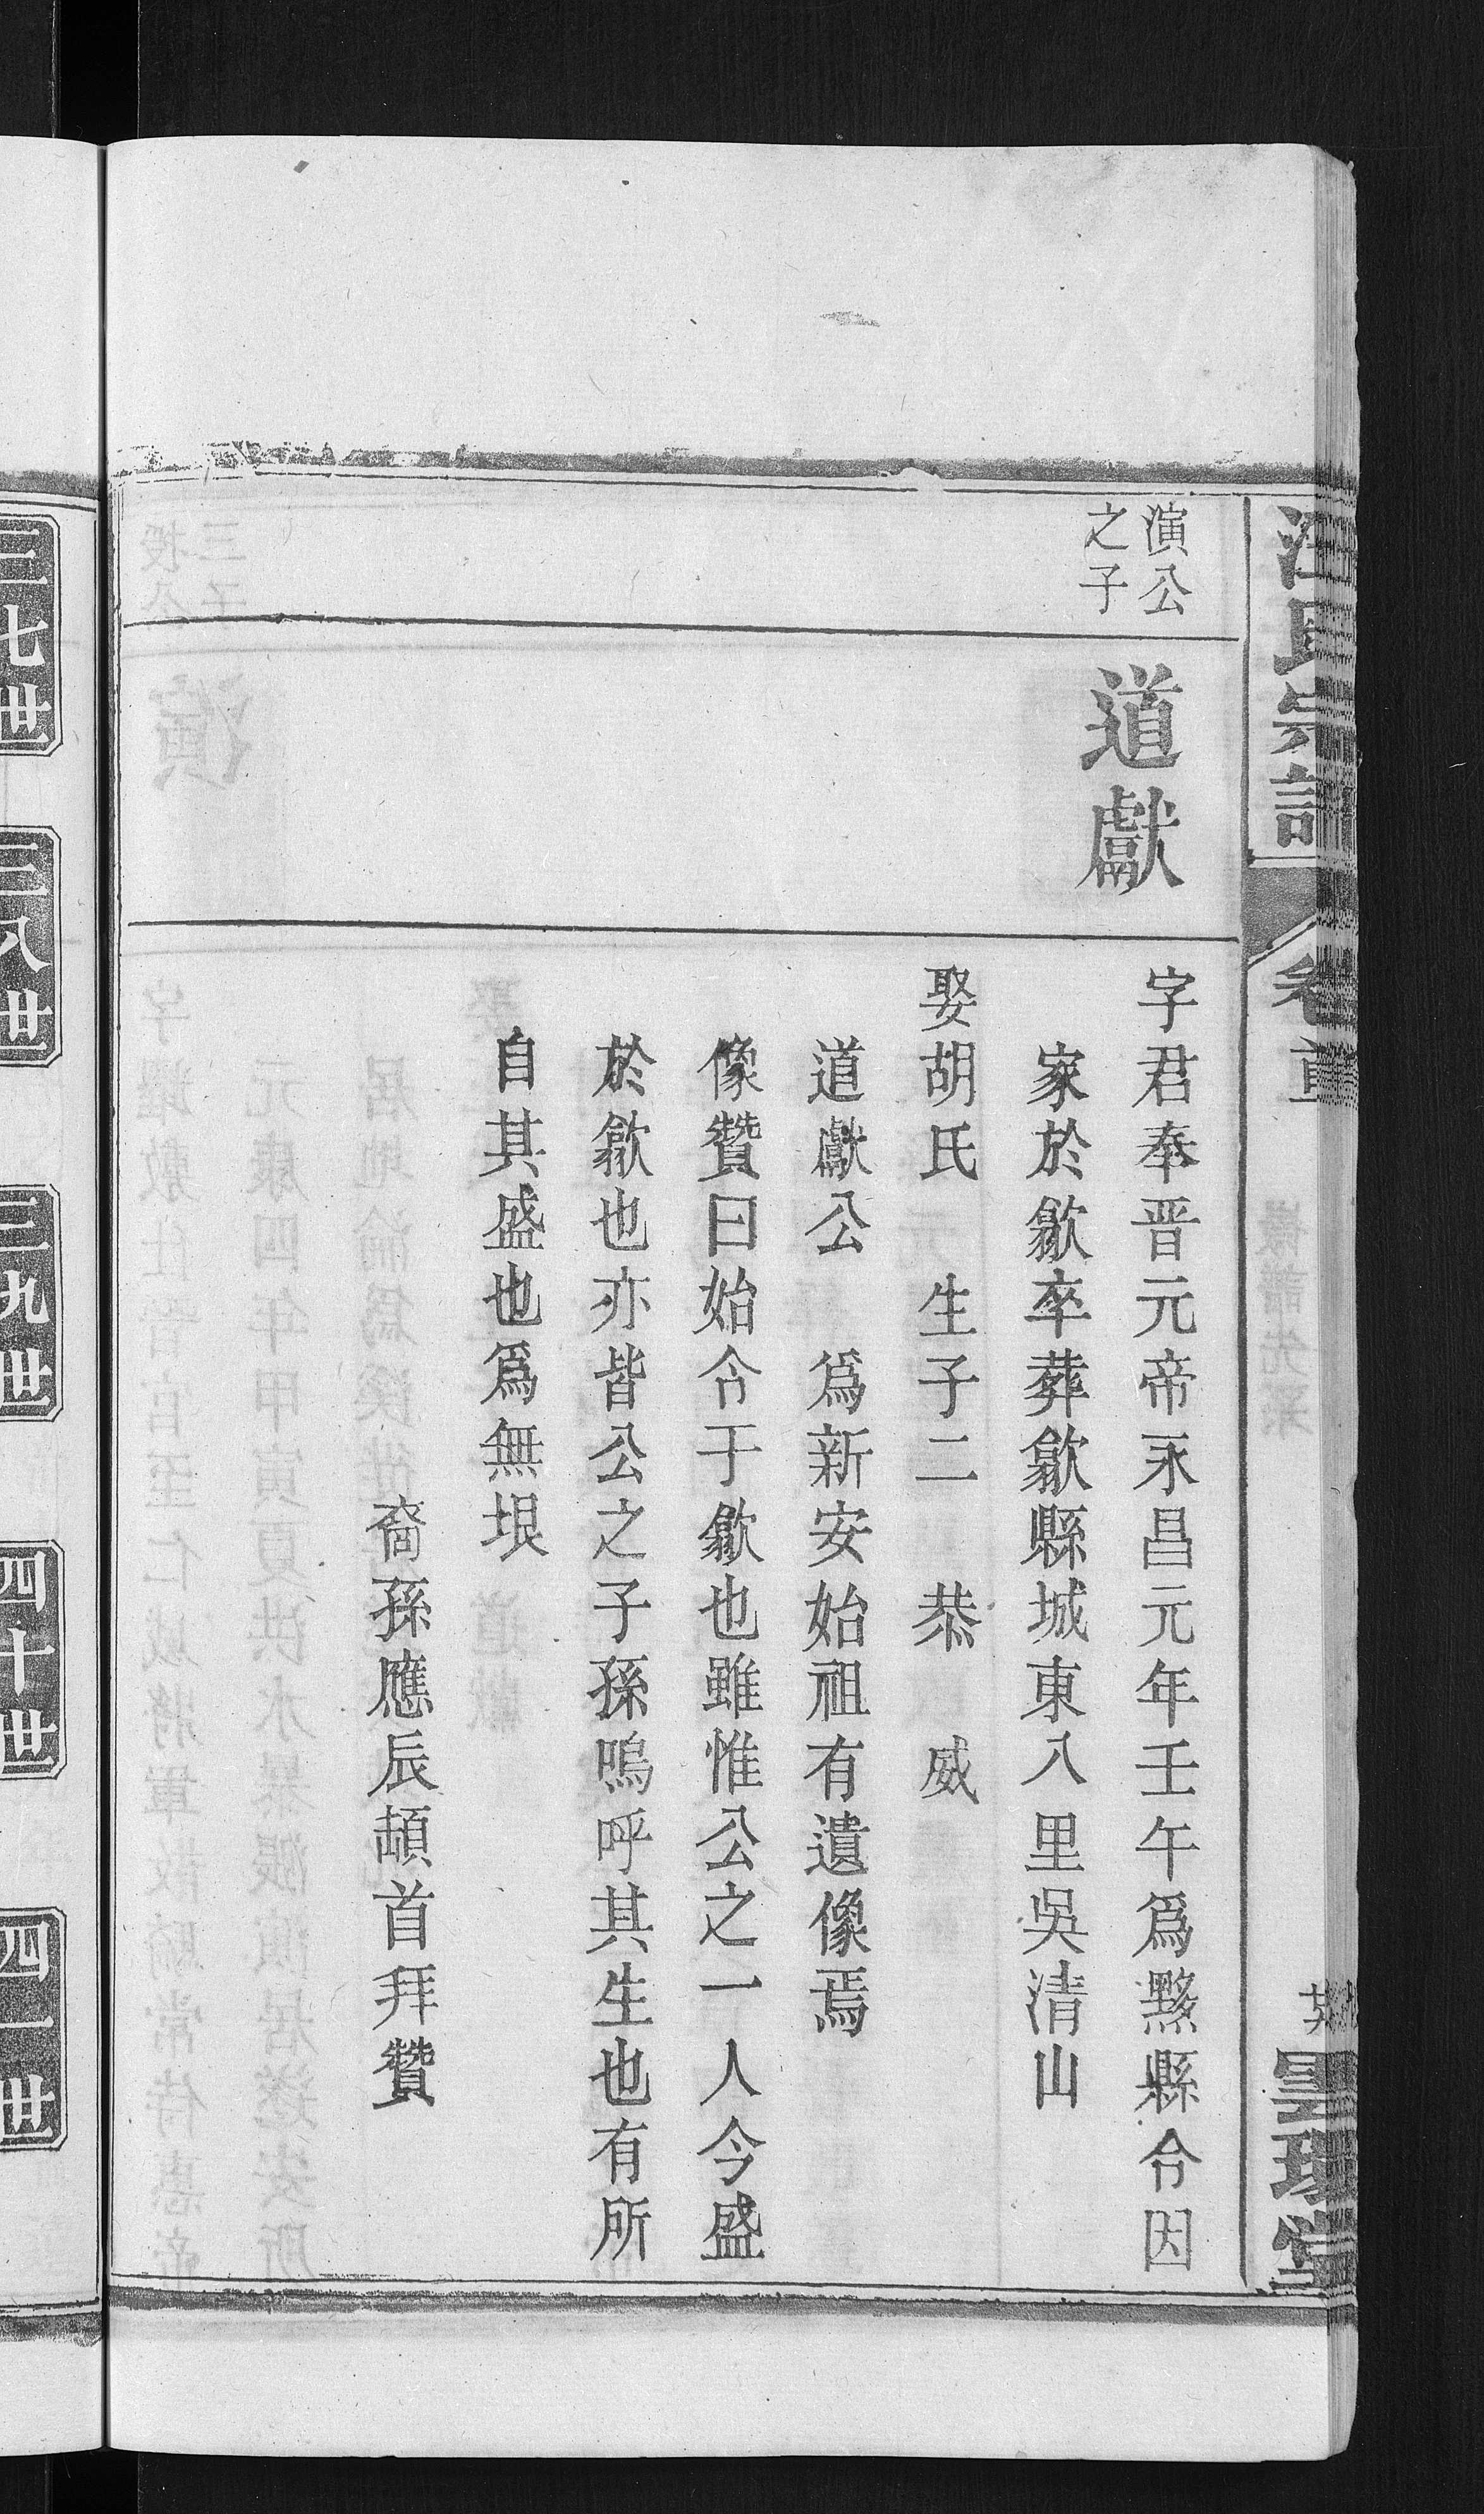 汪氏宗譜
卷首
演公
之子
道獻
字君奉晋元帝永昌元年壬午爲黟縣令因
家於歙卒葬歙縣城東八里吳清山
娶胡氏 生子二 恭 威
道獻公 爲新安始祖有遺像焉
像贊曰始令于歙也雖惟公之一人今盛
於歙也亦皆公之子孫嗚呼其生也有所
自其盛也爲無垠
裔孫應辰頓首拜贊
三七世
三八世
三九世
四十世
四一世